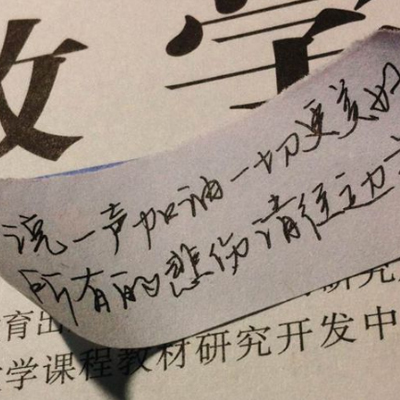 学
说一声加油一切更美好
所有的悲伤请往边
育出 研究
学课程教材研究开发中